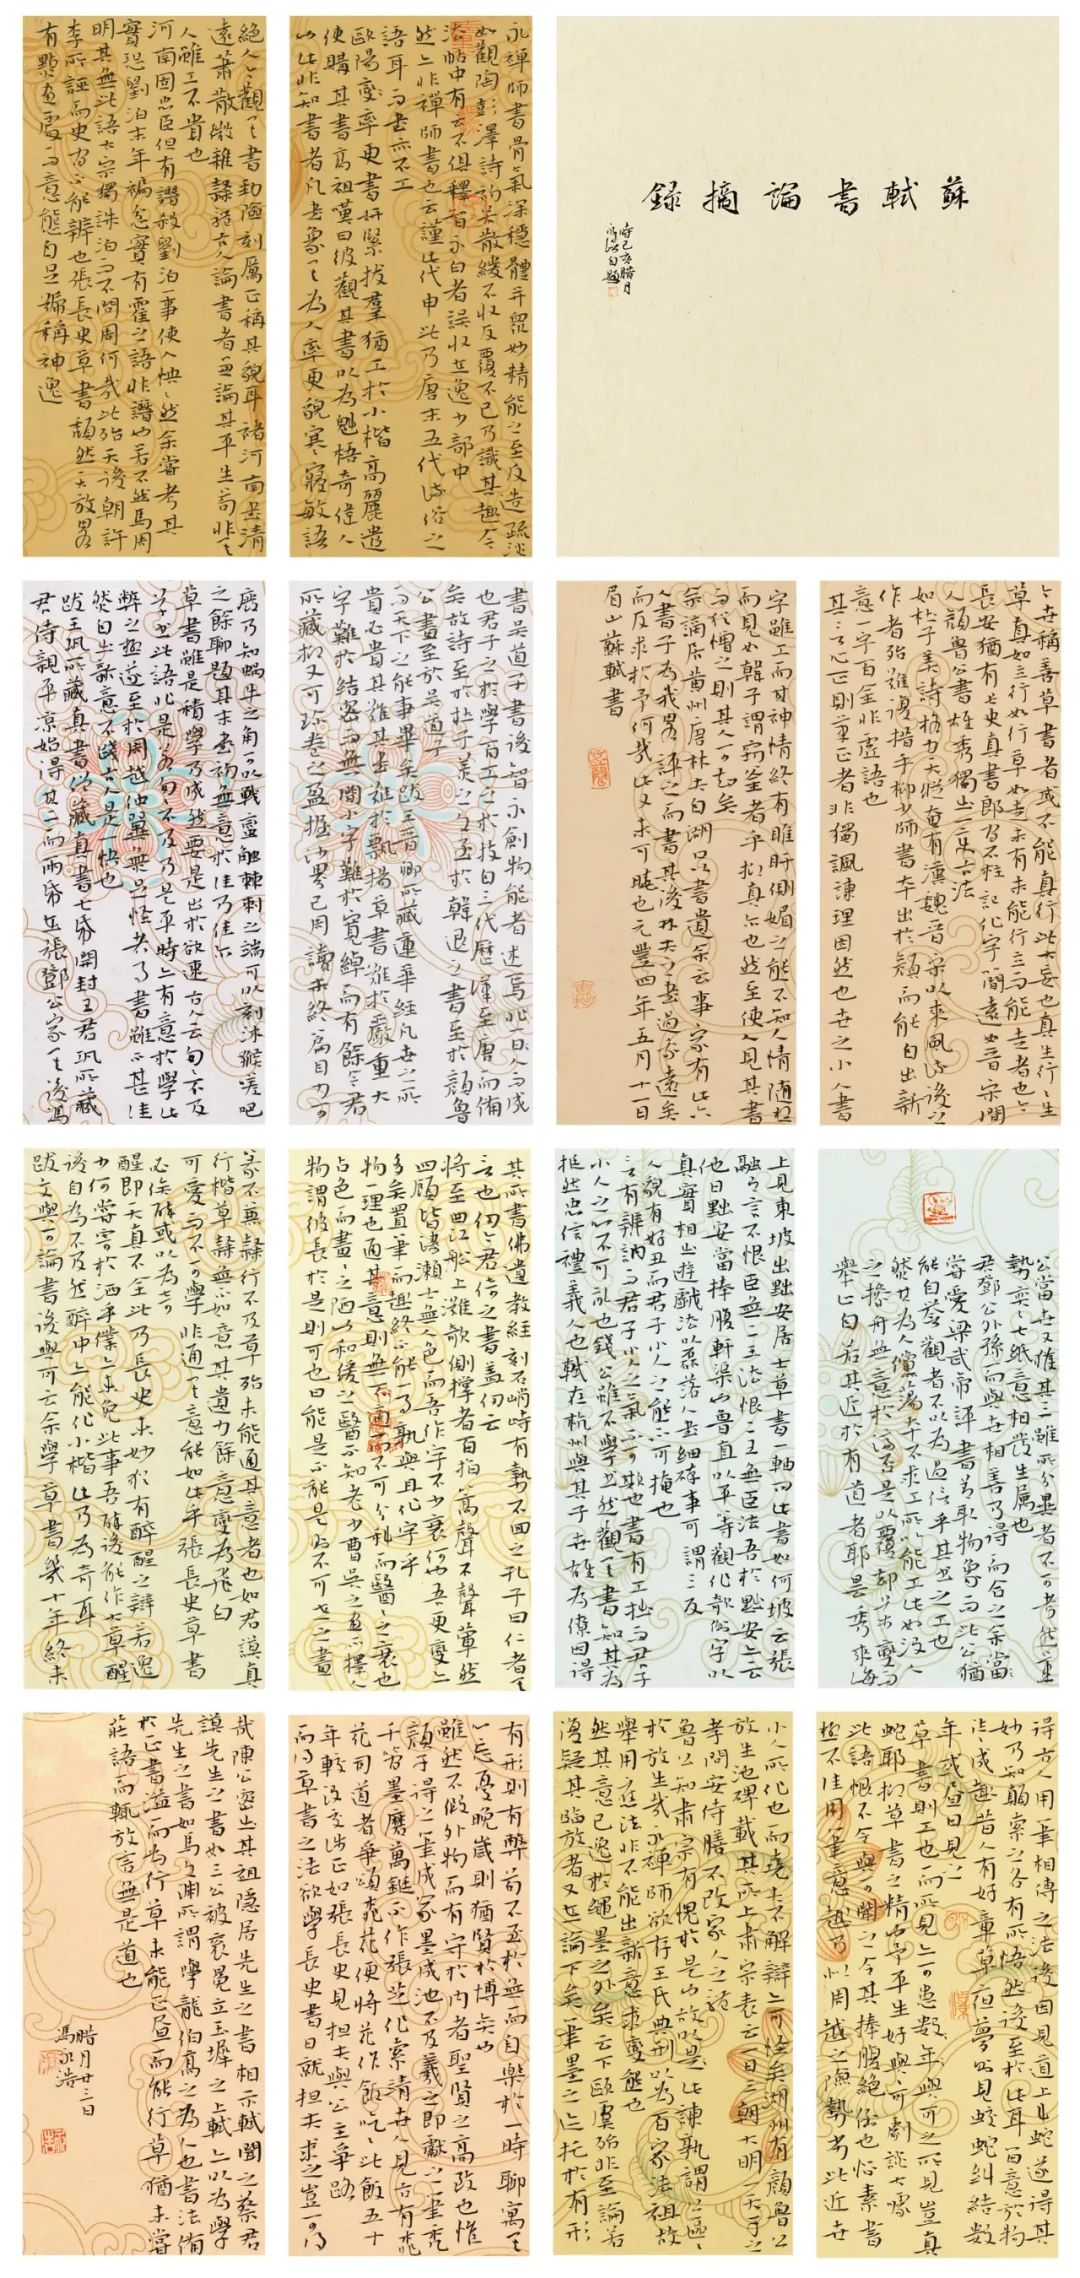 蘇軾書論摘錄
時己亥臘月
永浩自題
永禪師書骨氣深穩體并眾妙精能之至反造疏淡
如觀陶彭澤詩初若散緩不收反覆不已乃識其趣今
法帖中有云不俱釋智永白者誤收在逸少部中
然亦非禪師書也云謹此代申此乃唐末五代流俗之
語耳而書亦不工
歐陽率更書妍緊拔羣猶工於小楷高麗遣
使購其書高祖嘆曰彼觀其書以為魁梧奇偉人
也此非知書者凡書象其為人率更貌寒寢敏語
絕人今觀其書勁險刻厲正稱其貌耳褚河南書清
遠蕭散微雜隸體古人論書者兼論其平生苟非其
人雖工不貴也
河南固忠臣但有譖殺劉洎一事使人怏怏然余嘗考其
實恐劉洎末年褊忿實有霍之語非譖也若不然馬周
明其無此語太宗獨誅洎而不問周何哉此殆天后朝許
李所誣而史官不能辨也張長史草書頹然天放略
有點畫處而意態自足號稱神逸
今世稱善草書者或不能真行此大妄也真生行行生
草真如立行如行草如走未有未能行立而能走者也今
長安猶有長史真書郎官石柱記作字簡遠如晉宋間
人顏魯公書雄秀獨出一變古法
如杜子美詩格力天縱奄有漢魏晉宋以來風流後之
作者殆難復措手柳少師書本出於顏而能自出新
意一字百金非虛語也
其言心正則筆正者非獨諷諫理固然也世之小人書
字雖工而其神情終有睢盱側媚之態不知人情隨想
而見如韓子謂竊斧者乎抑真爾也然至使人見其書
而猶憎之則其人可知矣
余謫居黃州唐林夫自湖口以書遺余云吾家有此六
人書子為我略評之而書其後林夫之書過我遠矣
而反求於予何哉此又未可曉也元豐四年五月十一日
眉山蘇軾書
書吳道子畫後智者創物能者述焉非一人而成
也君子之於學百工之於技自三代歷漢至唐而備
矣故詩至於杜子美文至於韓退之書至於顏魯
公畫至於吳道子
而天下之能事畢矣跋王晉卿所藏蓮華經凡世之所
貴必貴其難真書難於飄揚草書難於嚴重大
字難於結密而無間小字難於寬綽而有餘今君
所藏抑又可珍卷之盈握沙界已周讀未終篇目力可
廢乃知蝸牛之角可以戰蠻觸棘刺之端可以刻沐猴嗟嘆
之餘聊題其末書初無意於佳乃佳爾
草書雖是積學乃成然要是出於欲速古人云匆匆不及
草書此語非是若匆匆不及乃是平時亦有意於學此
弊之極遂至於周越仲翼無足怪者吾書雖不甚佳
然自出新意不踐古人是一快也
跋王鞏所藏真書僧藏真書七紙開封王君鞏所藏
君侍親平涼始得其二而兩紙在張鄧公家其後馮
公當世又獲其三雖所分異者不可考然筆
勢奕奕七紙意相屬也
君鄧公外孫而與世相善乃得而合之余當
嘗愛梁武帝評書善取物象而此公猶
能自譽觀者不以為過信乎其書之工也
然其為人儻蕩本不求工所以能工此如沒人
之操舟無意於濟否是以覆却萬變而
舉止自若其近於有道者耶曇秀來海
上見東坡出黔安居士草書一軸問此書如何坡云張
融有言不恨臣無二王法恨二王無臣法吾於黔安亦云
他日黔安當捧腹軒渠也魯直以平等觀作欹側字以
真實相出遊戲法以磊落人書細碎事可謂三反
人貌有好丑而君子小人之態不可掩也
言有辨訥而君子小人之氣不可欺也書有工拙而君子
小人之心不可亂也錢公雖不學書然觀其書知其為
挺然忠信禮義人也軾在杭州與其子世雄為僚因得
其所書佛遺教經刻石峭峙有勢不回之孔子曰仁者其
言也訒今君倚之書蓋訒云
將至曲江船上灘欹側撐者百指篙聲石聲犖然
四顧皆濤瀨士無人色而吾作字不少衰何也吾更變亦
多矣置筆而起終不能一事孰與且作字乎
物一理也通其意則無適而不可分科而醫醫之衰也
占色而畫畫之陋也和緩之醫不知老少曹吳之畫不擇人
物謂彼長於是則可也曰能是不能是則不可世之書
篆不兼隸行不及草殆未能通其意者也如君謨真
行楷草隸無不如意其遺力餘意變為飛白
可愛而不可學非通其意能如此乎張長史草書
必俟醉或以為奇
醒即天真不全此乃長史未妙猶有醉醒之辯若逸
少何嘗寄於酒乎僕亦未免此事吾醉後能作大草醒
後自為不及然醉中亦能作小楷此乃為奇耳
跋文與可論書後與可云余學草書幾十年終未
得古人用筆相傳之法後因見道上鬥蛇遂得其
妙乃知顛素之各有所悟然後至於此耳留意於物
往往成趣昔人有好草書夜夢則見蛟蛇糾結數
年或晝日見之
草書則工也而所見亦可患與可之所見豈真
蛇耶抑草書之精也予平生好與與可劇談大噱
此語恨不令與可聞之令其捧腹絕倒也懷素書
極不佳用筆意趣乃似周越之險劣此近世
小人所作也而堯夫不解辯亦可怪矣湖州有顏魯公
放生池碑載其所上肅宗表云一日三朝大明天子之
孝問安侍膳不改家人之禮
魯公知肅宗有愧於是也故以是諫孰謂公區區
於放生哉永禪師欲存王氏典刑以為百家法祖故
舉用舊法非不能出新意求變態也
然其意已逸於繩墨之外矣云下歐虞殆非至論若
復疑其臨放者又在此論下矣筆墨之跡托於有形
有形則有弊苟不至於無而自樂於一時聊寓其
心忘憂晚歲則猶賢於博弈也
雖然不假外物而有守於內者聖賢之高致也惟
顏子得之筆成冢墨成池不及羲之即獻之筆禿
千管墨磨萬鋌不作張芝作索靖世人見古有桃
花悟道者爭頌桃花便將桃花作飯吃吃此飯五十
年轉沒交涉正如張長史見担夫與公主爭路
而得草書之法欲學長史書日就担夫求之豈可得
哉陳公密出其祖隱居先生之書相示軾聞之蔡君
謨先生之書如三公被袞冕立玉墀之上軾亦以為學
先生之書如馬文淵所謂學龍伯高之為人也書法備
於正書溢而為行草未能正書而能行草猶未嘗
莊語而輒放言無是道也
臘月廿三日
馮永浩